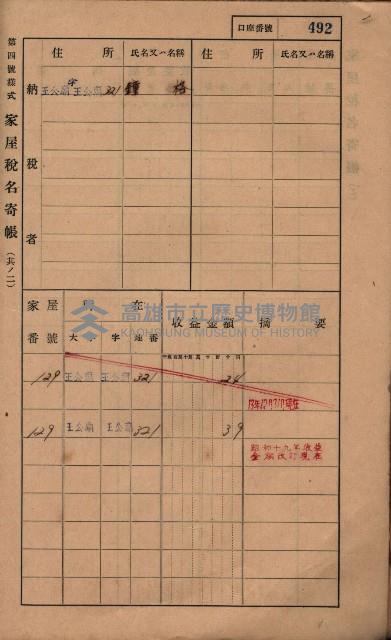 口座番號 492
第四號樣式 家屋稅名寄帳 (共ノ二)
住所 氏名又ハ名稱 住所 氏名又ハ名稱
納稅者
字
王公廟 王公廟 321 鍾
家屋番號 所在 收益金額 摘要
大字 字 地番
129 王公廟 王公廟 321 24
129 王公廟 王公廟 321 39
昭和十九年收益
金額改訂現在
高雄市立歷史博物館
KAOHSIUNG MUSEUM OF HISTORY